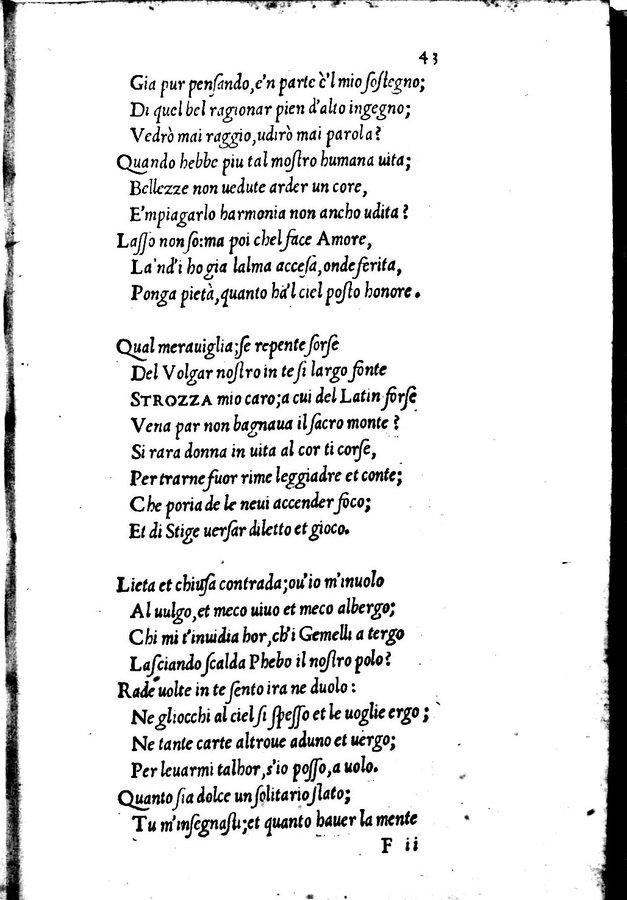 43
Gia pur pensando, e'n parte è'l mio sostegno;
Di quel bel ragionar pien d'alto ingegno;
Vedrò mai raggio, udirò mai parola?
Quando hebbe piu tal mostro humana uita;
Bellezze non uedute arder un core,
E'mpiagarlo harmonia non ancho udita?
Lasso non so: ma poi chel face Amore,
La'nd'i ho gia lalma accesa, onde ferita,
Ponga pietà, quanto ha'l ciel posto honore.

Qual merauiglia; se repente sorse
Del Volgar nostro in te si largo fonte
STROZZA mio caro; a cui del Latin forse
Vena par non bagnaua il sacro monte?
Si rara donna in uita al cor ti corse,
Per trarne fuor rime leggiadre et conte;
Che poria de le neui accender foco;
Et di Stige uersar diletto et gioco.

Lieta et chiusa contrada; ou'io m'inuolo
Al uulgo, et meco uiuo et meco albergo;
Chi mi t'inuidia hor, ch'i Gemelli a tergo
Lasciando scalda Phebo il nostro polo?
Rade uolte in te sento ira ne duolo:
Ne gliocchi al ciel si spesso et le uoglie ergo;
Ne tante carte altroue aduno et uergo;
Per leuarmi talhor, s'io posso, a uolo.
Quanto sia dolce un solitario stato;
Tu m'insegnasti; et quanto hauer la mente
F ii